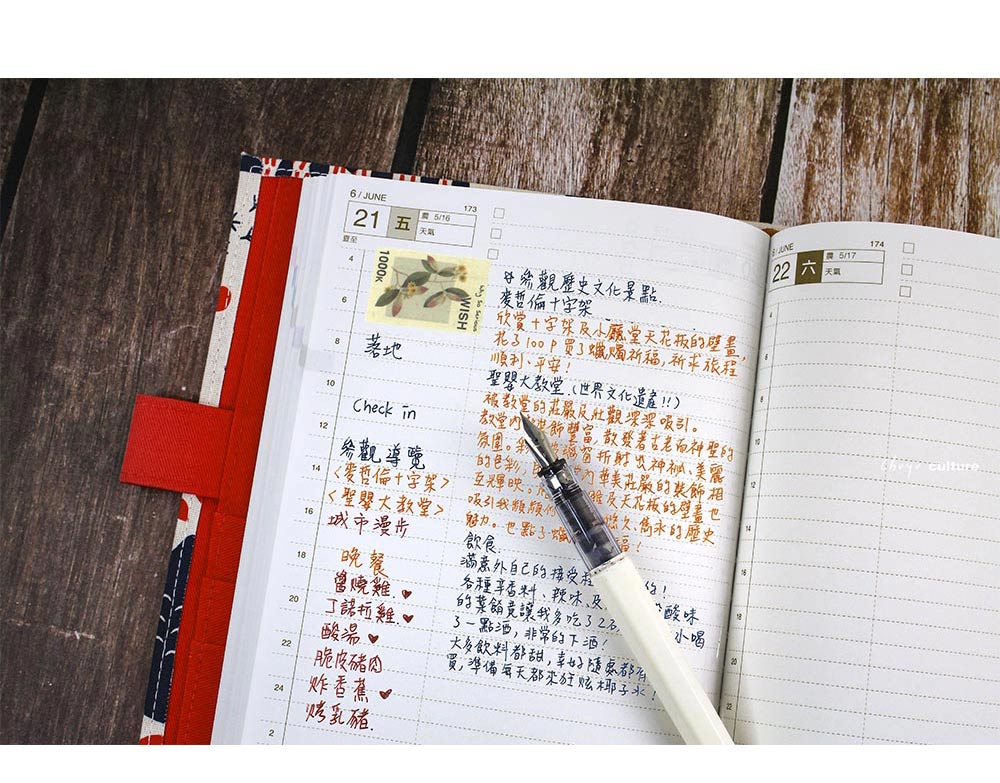 6 / JUNE
173
21 五
農 5/16
天氣
夏至
1000K
WISH
4
6
8
10
12
14
16
18
20
22
24
2
落地
Check in
參觀導覽
<麥哲倫十字架>
<聖嬰大教堂>
城市漫步
晚餐
醬燒雞 ♥
丁諾拉雞 ♥
酸湯 ♥
脆皮豬肉
炸香蕉 ♥
烤乳豬.
參觀歷史文化景點.
麥哲倫十字架
欣賞十字架及小廳堂天花板的壁畫,
花了100P買了蠟燭祈福,祈求旅程
順利、平安!
聖嬰大教堂(世界文化遺產!!)
被教堂的莊嚴及壯觀深深吸引。
教堂內 裝飾豐富,散發著古老而神聖的
氛圍。 折射出神秘、美麗
的色彩, 內華美莊嚴的裝飾相
互輝映。 及天花板的壁畫也
吸引我頻頻 悠久、雋永的歷史
魅力。也點了蠟 福!
飲食
滿意外自己的接受 的!
各種辛香料、辣味、及 酸味
的菜餚竟讓我多吃了2 小喝
了一點酒,非常的下酒!
大多飲料都甜,幸好隨處都有
買,準備每天都來狂炫椰子水!
6 / JUNE
174
22 六
農 5/17
天氣
4
6
8
10
12
16
18
20
22
culture